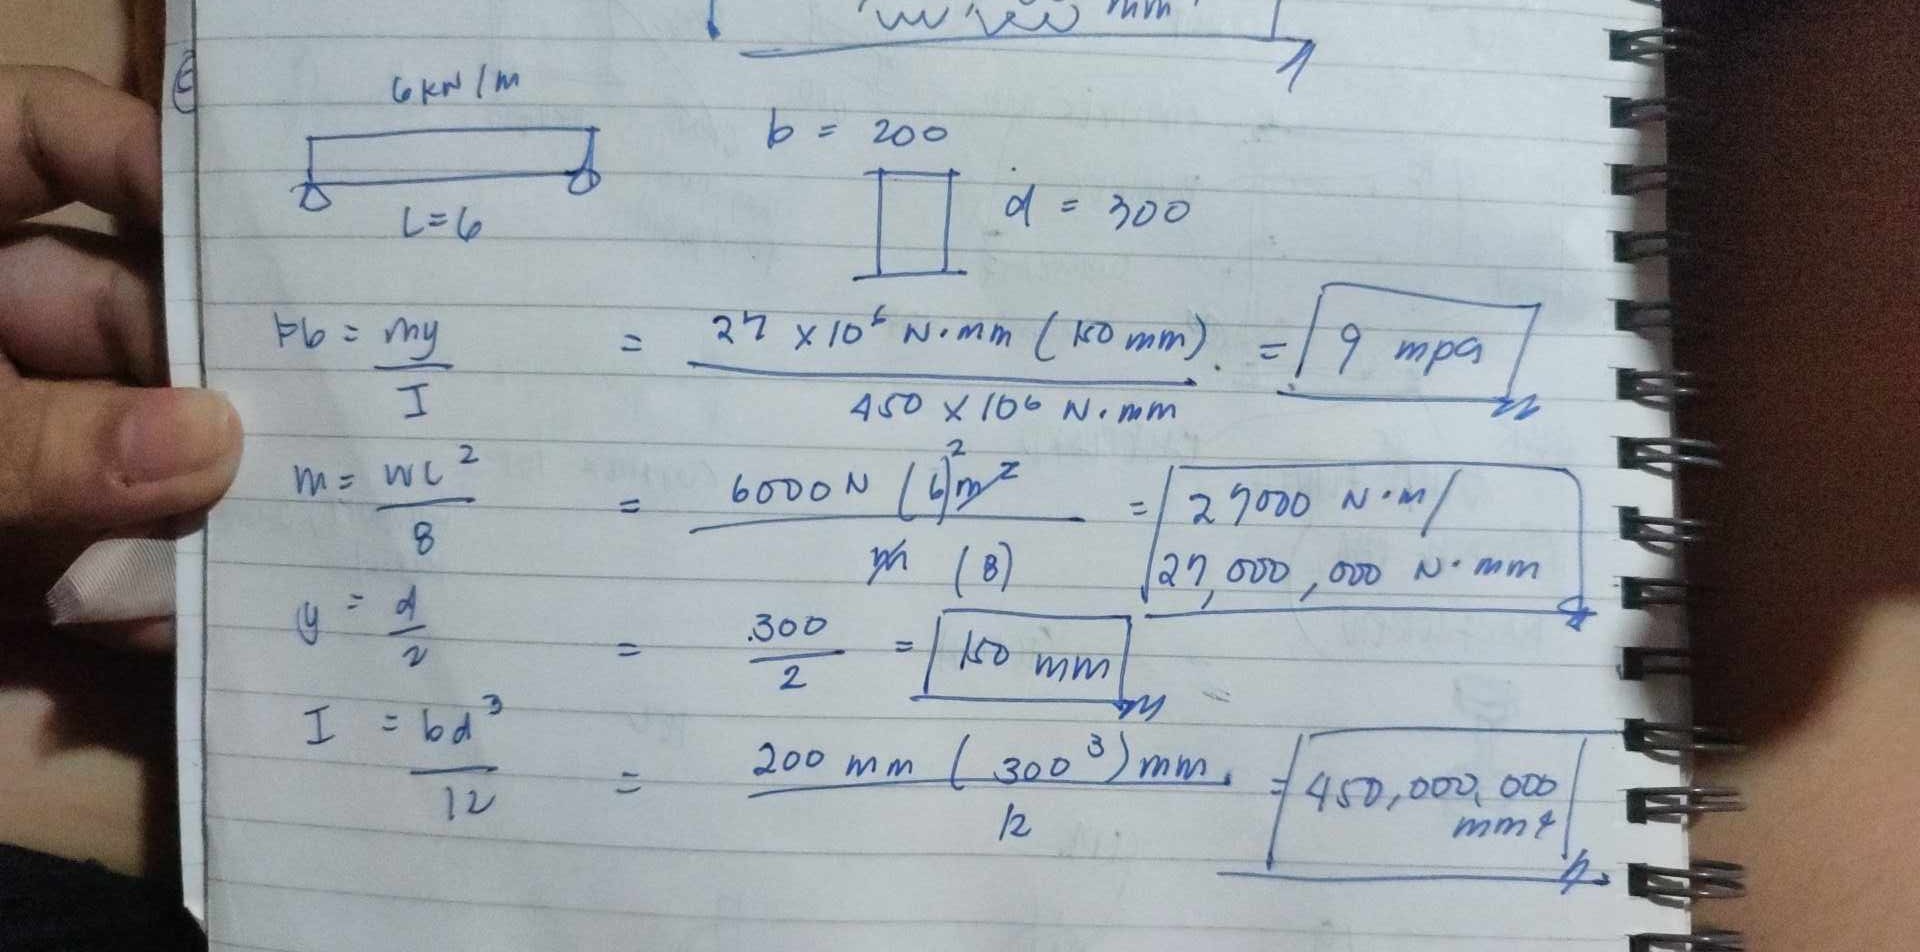 mm
6 kN/m
b = 200
L=6
d = 300
Fb = my/I = 27 x 10⁶ N·mm (150 mm) / 450 x 10⁶ N·mm = 9 mpa
m = wL²/8 = 6000N (6)² m² / m (8) = 27000 N·m/
27,000,000 N·mm
y = d/2 = 300/2 = 150 mm
I = bd³/12 = 200 mm (300³) mm / 12 = 450,000,000
mm4